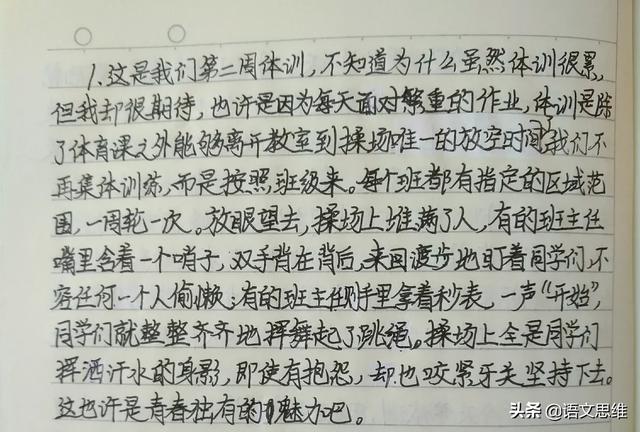 1.这是我们第二周体训，不知道为什么虽然体训很累，
但我却很期待，也许是因为每天面对繁重的作业，体训是除
了体育课之外能够离开教室到操场唯一的放空时间了。我们不
再集体训练，而是按照班级来。每个班都有指定的区域范
围，一周轮一次。放眼望去，操场上堆满了人，有的班主任
嘴里含着一个哨子，双手背在背后，来回渡步地盯着同学们，不
容任何一个人偷懒；有的班主任则手里拿着秒表，一声“开始”，
同学们就整整齐齐地挥舞起了跳绳。操场上全是同学们
挥洒汗水的身影，即使有抱怨，却也咬紧牙关坚持下去。
这也许是青春独有的魅力吧。
头条 @语文思维